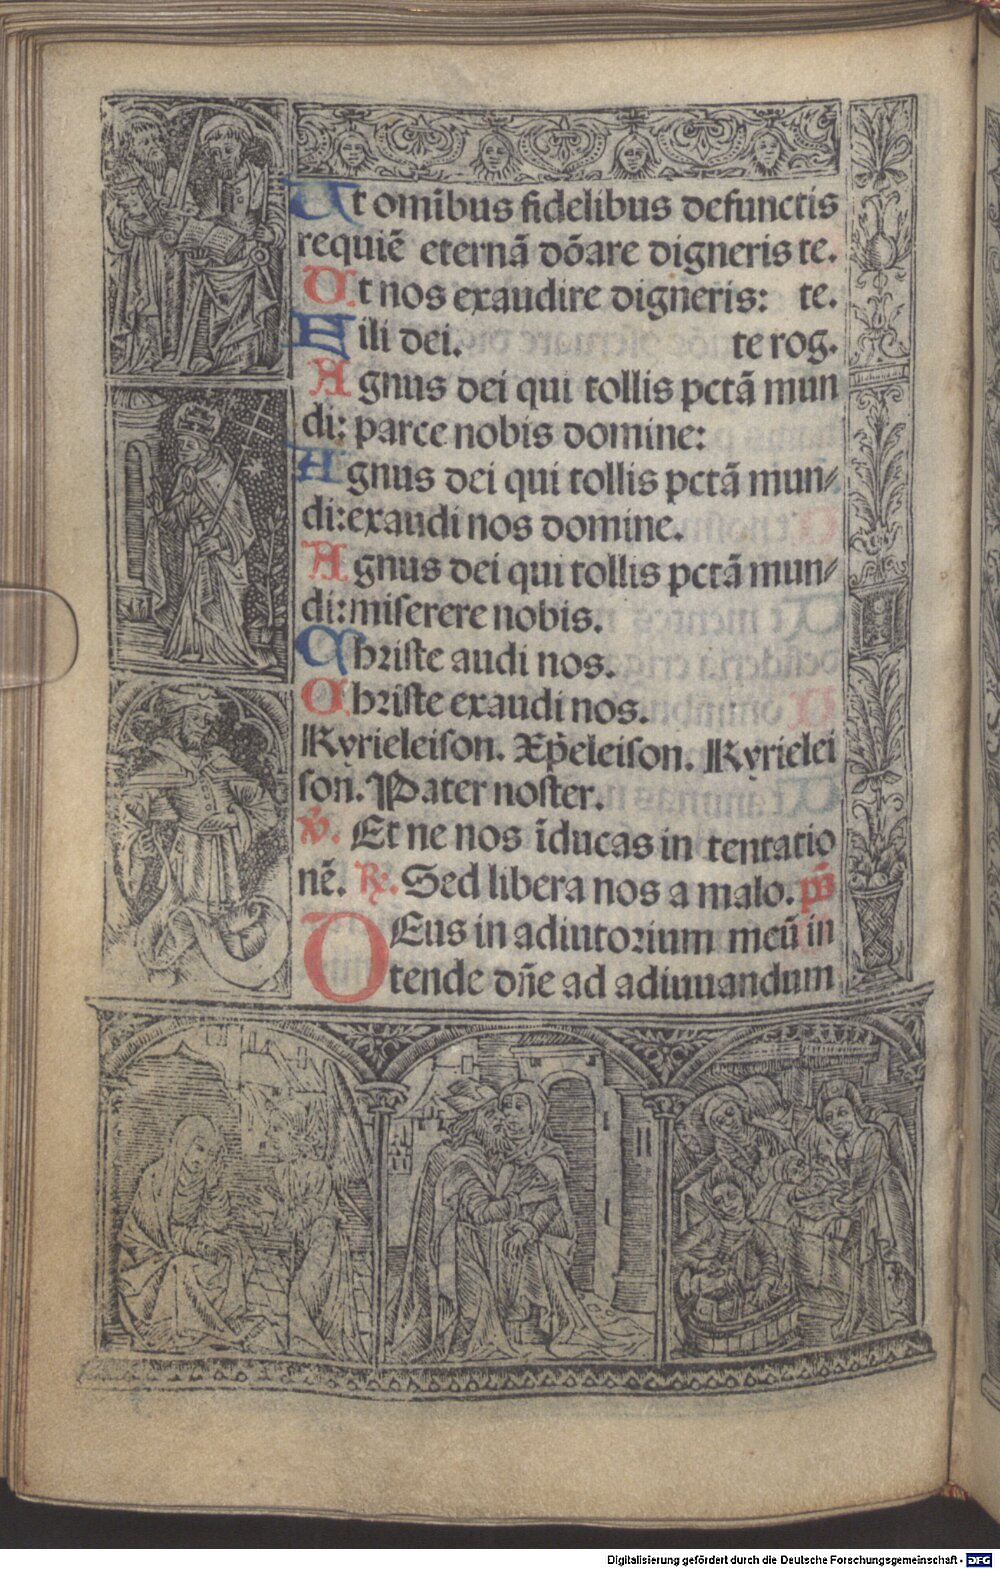 Ut omībus fidelibus defunctis
requiē eternā dōare digneris te.
Ut nos exaudire digneris: te.
Fili dei. te rog.
Agnus dei qui tollis pctā mun
di: parce nobis domine:
Agnus dei qui tollis pctā mun⸗
di:exaudi nos domine.
Agnus dei qui tollis pctā mun⸗
di:miſerere nobis.
Chriſte audi nos.
Chriſte exaudi nos.
Kyrieleiſon. Xp̄eleiſon. Kyrielei
ſon. Pater noſter.
℣. Et ne nos īducas in tentatio
nē. ℟. Sed libera nos a malo. ps̄
DEus in adiutorium meū in
tende dn̄e ad adiuuandum
Digitalisierung gefördert durch die Deutsche Forschungsgemeinschaft - DFG